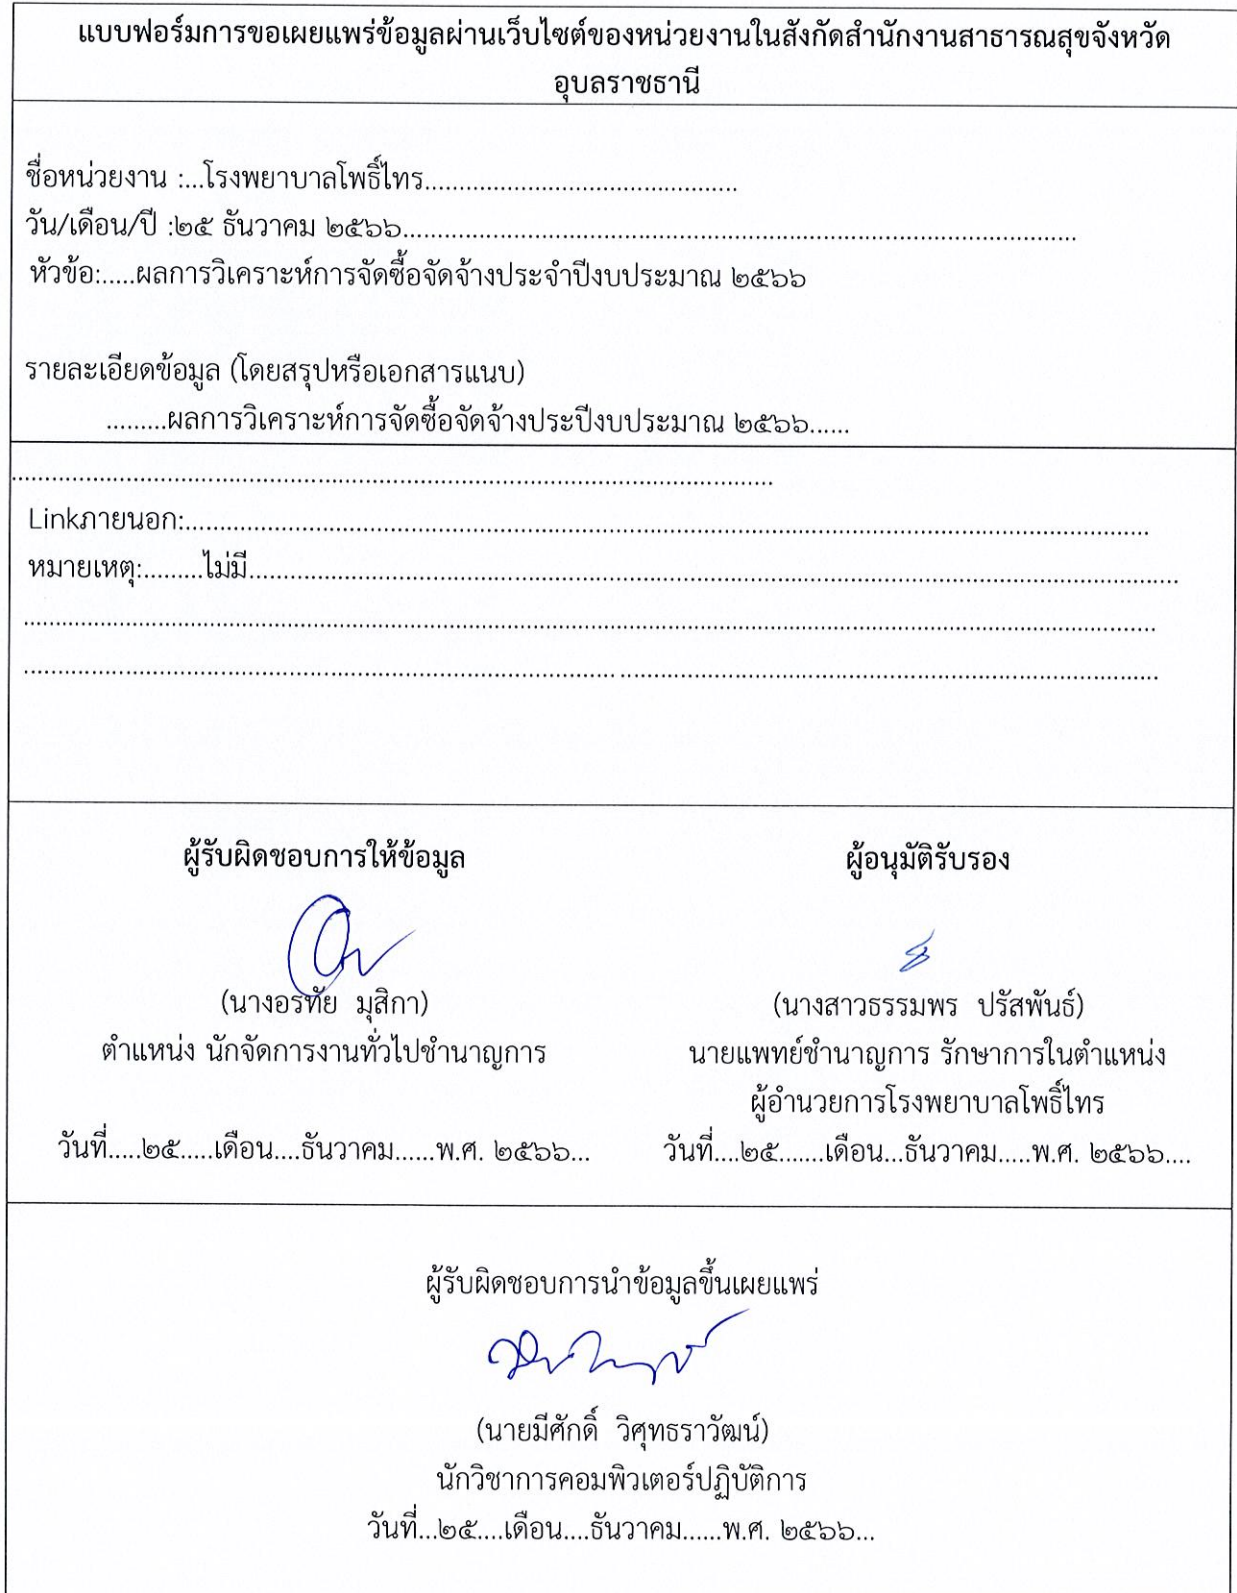 แบบฟอร์มการขอเผยแพร่ข้อมูลผ่านเว็บไซต์ของหน่วยงานในสังกัดสำนักงานสาธารณสุขจังหวัด
อุบลราชธานี
ชื่อหน่วยงาน :...โรงพยาบาลโพธิ์ไทร.............................................
วัน/เดือน/ปี :๒๕ ธันวาคม ๒๕๖๖.................................................................................................
หัวข้อ:.....ผลการวิเคราะห์การจัดซื้อจัดจ้างประจำปีงบประมาณ ๒๕๖๖
รายละเอียดข้อมูล (โดยสรุปหรือเอกสารแนบ)
.........ผลการวิเคราะห์การจัดซื้อจัดจ้างประปีงบประมาณ ๒๕๖๖......
Linkภายนอก:.............................................................................................................................
หมายเหตุ:.........ไม่มี.............................................................................................................................
ผู้รับผิดชอบการให้ข้อมูล ผู้อนุมัติรับรอง
(นางอรทัย มุสิกา) (นางสาวธรรมพร ปรัสพันธ์)
ตำแหน่ง นักจัดการงานทั่วไปชำนาญการ นายแพทย์ชำนาญการ รักษาการในตำแหน่ง
ผู้อำนวยการโรงพยาบาลโพธิ์ไทร
วันที่.....๒๕.....เดือน....ธันวาคม......พ.ศ. ๒๕๖๖... วันที่....๒๕.......เดือน...ธันวาคม.....พ.ศ. ๒๕๖๖....
ผู้รับผิดชอบการนำข้อมูลขึ้นเผยแพร่
(นายมีศักดิ์ วิศุทธราวัฒน์)
นักวิชาการคอมพิวเตอร์ปฏิบัติการ
วันที่...๒๕....เดือน....ธันวาคม......พ.ศ. ๒๕๖๖...